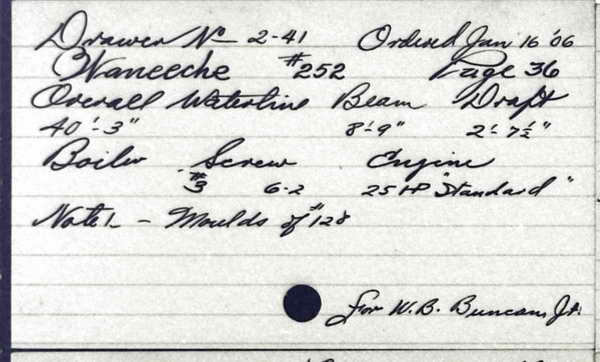 Drawer No 2-41 Ordered Jan 16 '06
Waneeche #252 Page 36
Overall Waterline Beam Draft
40'-3" 8'-9" 2'-7½"
Boiler Screw Engine
#3 6-2 25 HP "Standard"
Note 1 - Moulds of #128
for W. B. Duncan, Jr.